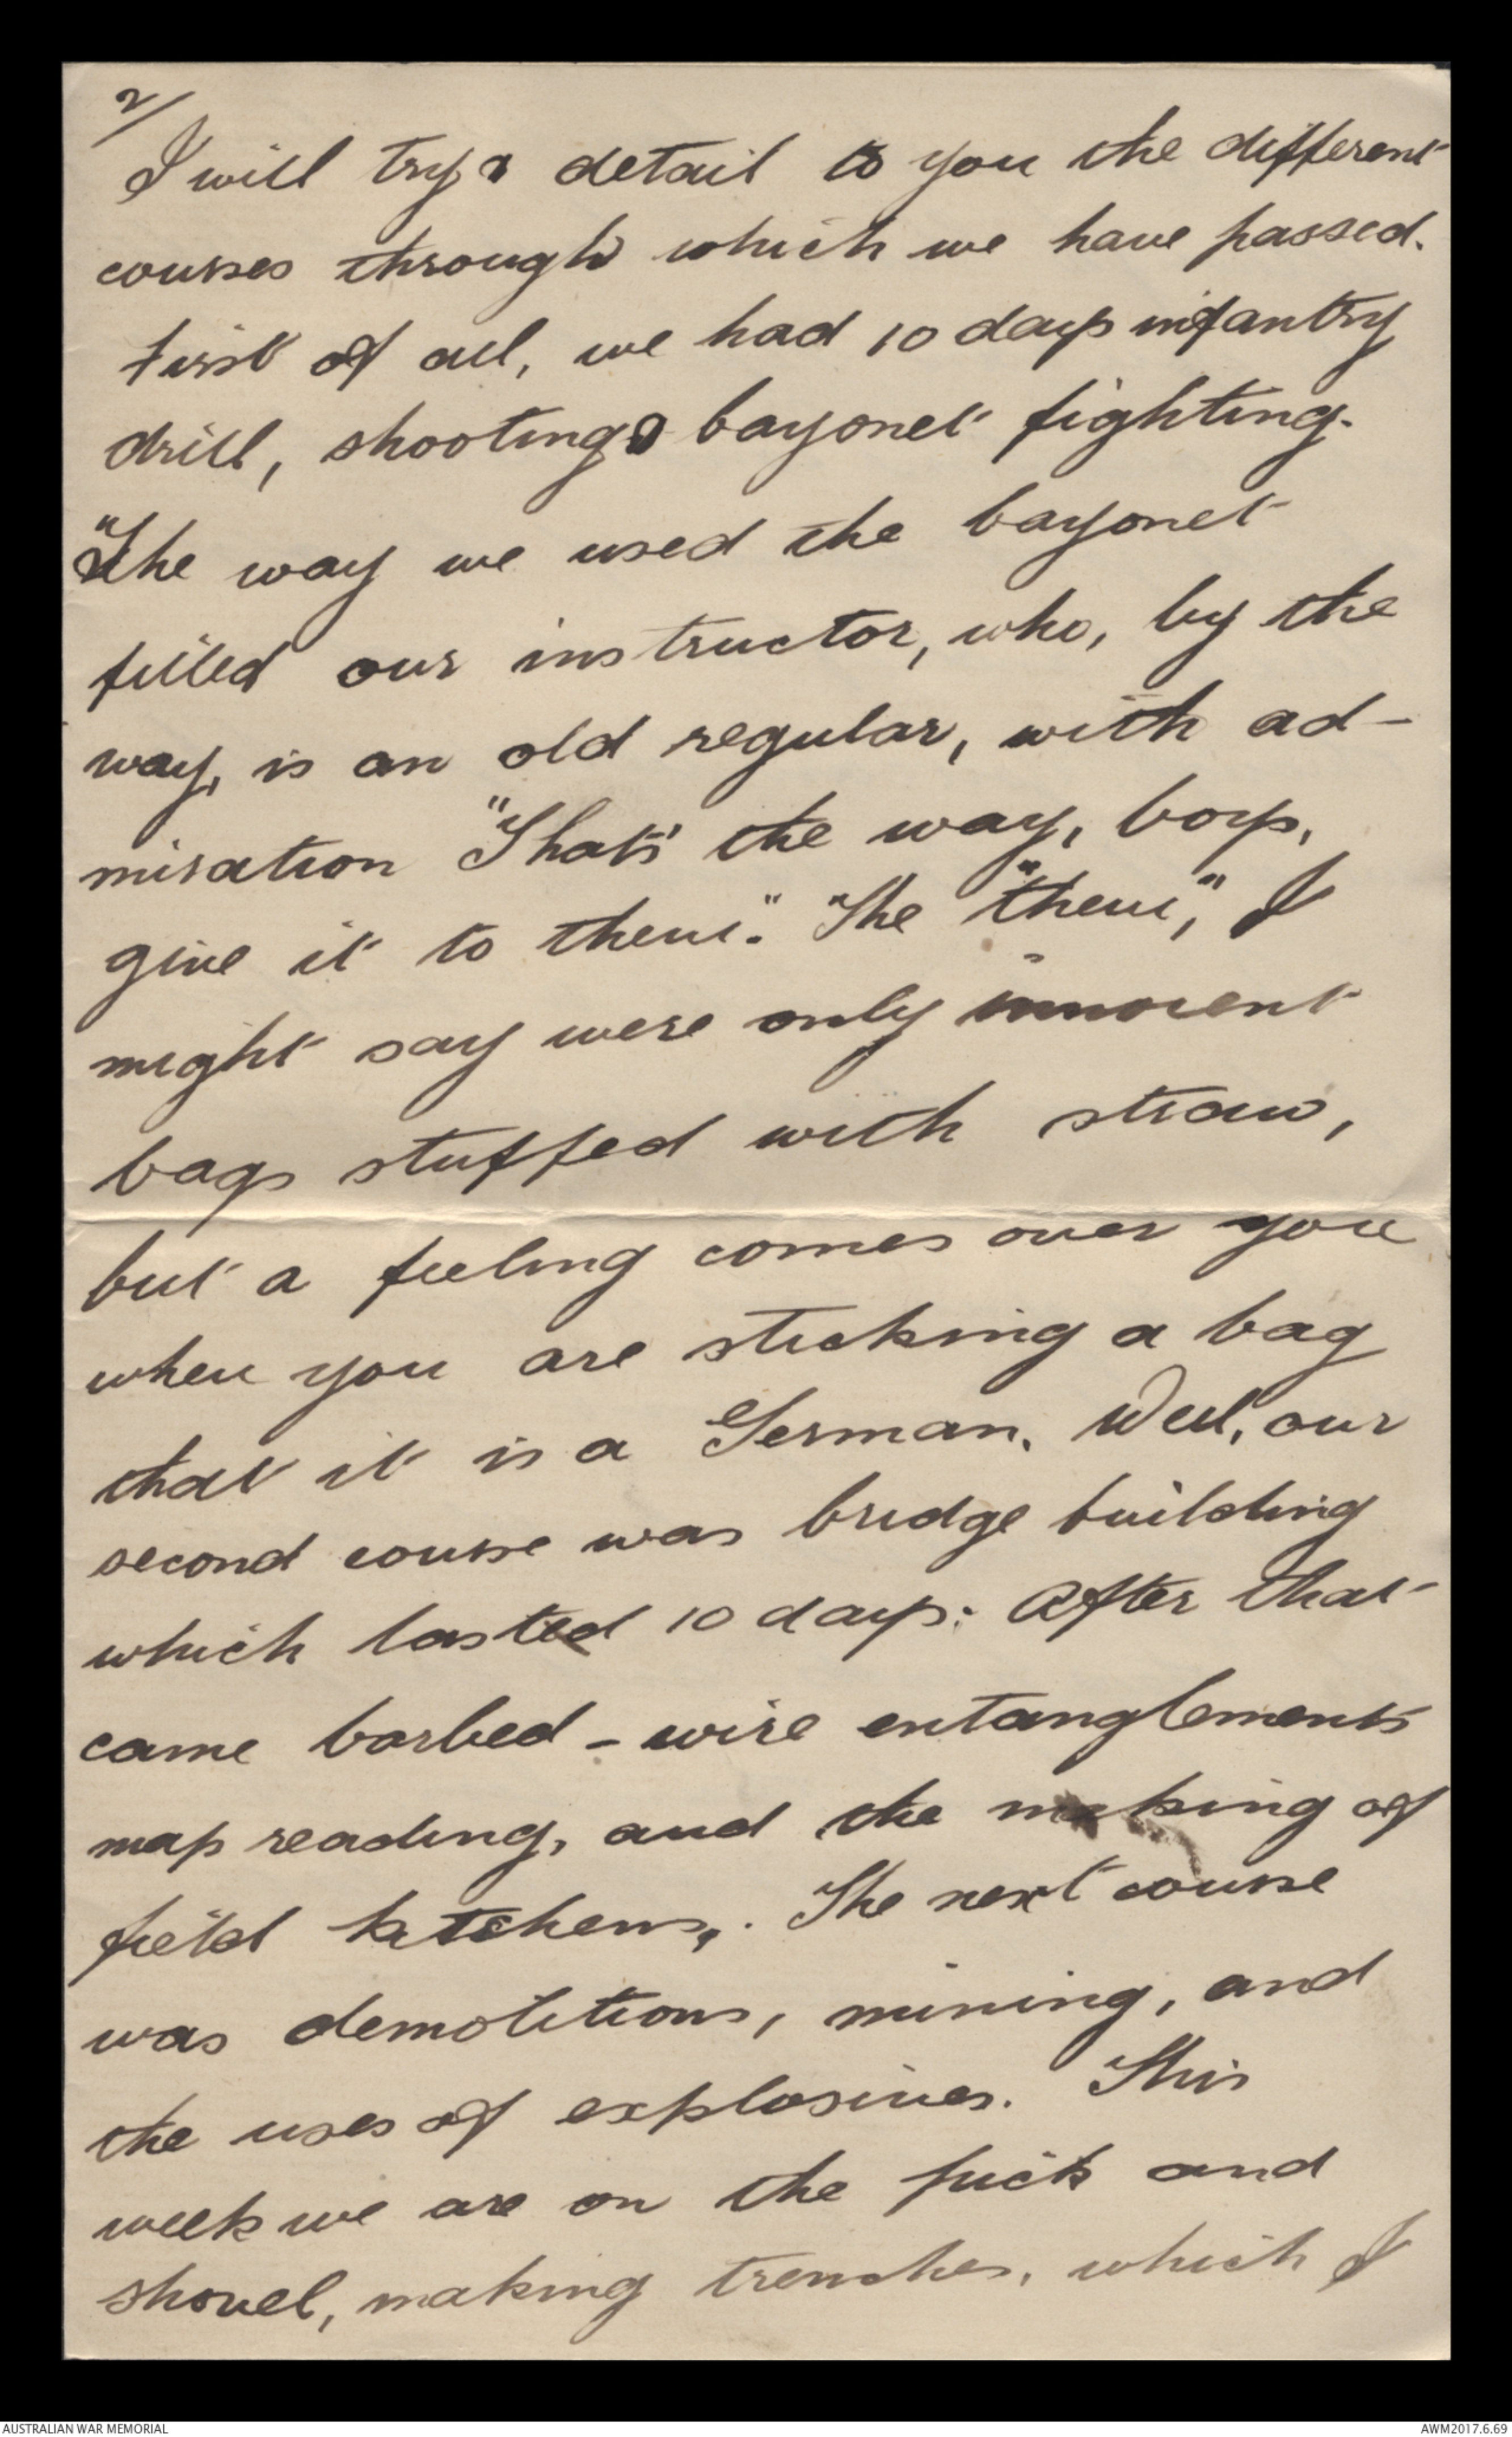 2/
I will try & detail to you the different
courses through which we have passed.
First of all, we had 10 days infantry
drill, shooting & bayonet fighting.
"The way we used the bayonet
filled our instructor, who, by the
way, is an old regular, with ad-
miration "That's the way, boys,
give it to them." The "them", I
might say were only innocent
bags stuffed with straw,
but a feeling comes over you
when you are sticking a bag
that it is a German. Well, our
second course was bridge building
which lasted 10 days. After that
came barbed-wire entanglements
map reading, and the making of
field kitchens,. The next course
was demolitions, mining, and
the uses of explosives. This
week we are on the pick and
shovel, making trenches, which I
AUSTRALIAN WAR MEMORIAL
AWM2017.6.69